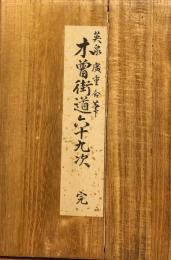 英泉廣重合筆
木曽街道六十九次 完